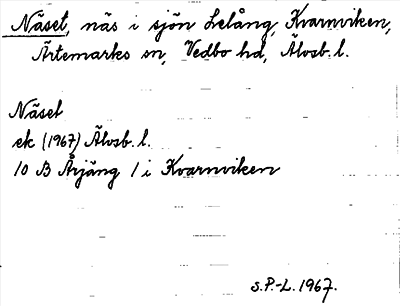 Näset, näs i sjön Lelång, Kvarnviken,
Ärtemarks sn, Vedbo hd, Älvsb. l.
Näset
ek (1967) Älvsb. l.
10 B Årjäng 1 i Kvarnviken
S.P.-L. 1967.